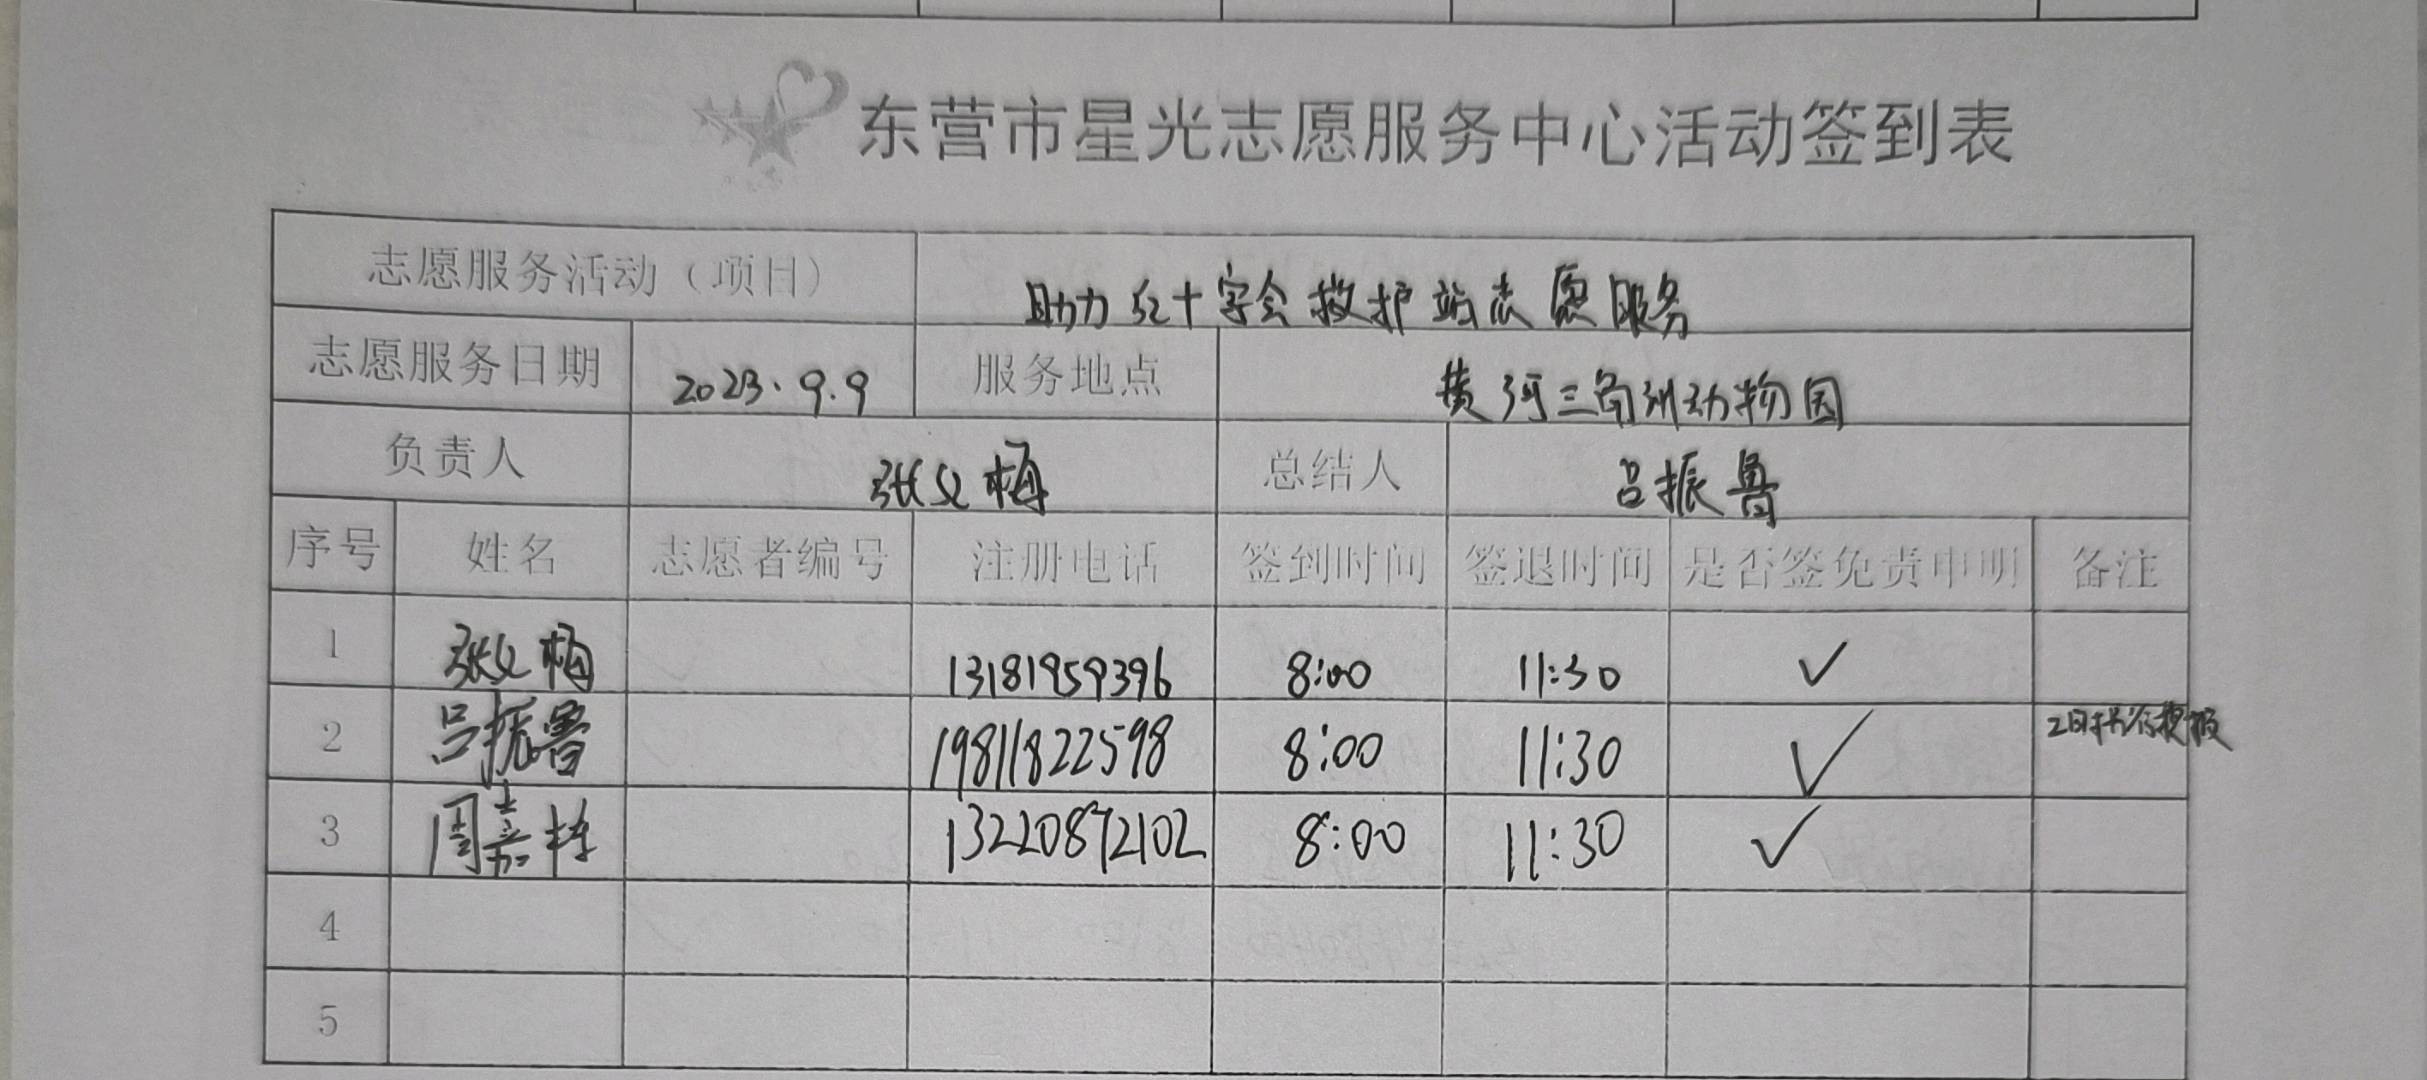 东营市星光志愿服务中心活动签到表
志愿服务活动（项目） 助力红十字会救护站志愿服务
志愿服务日期 2023.9.9 服务地点 黄河三角洲动物园
负责人 张父梅 总结人 吕振鲁
序号 姓名 志愿者编号 注册电话 签到时间 签退时间 是否签免责申明 备注
1 张父梅 13181959396 8:00 11:30 ✓
2 吕振鲁 19811822598 8:00 11:30 ✓
3 周嘉栋 13220872102 8:00 11:30 ✓
4
5